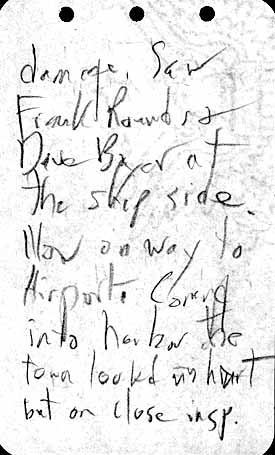 damage. Saw
Frank Rounds &
Dave Boyer at
the ship side.
Now on way to
Airport. Coming
into harbor the
town looked unhurt
but on close insp.